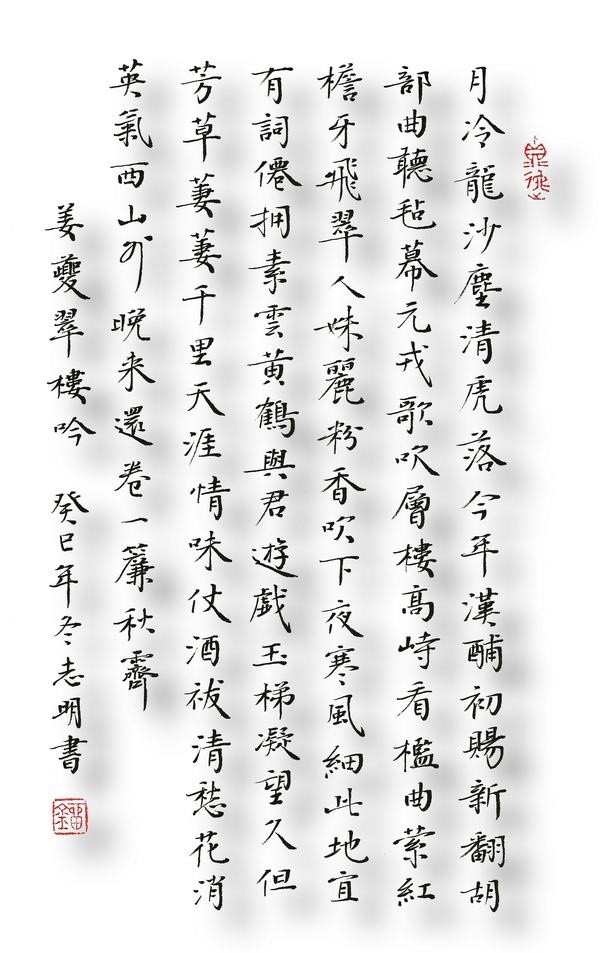 月冷龍沙塵清虎落今年漢酺初賜新翻胡
部曲聽毡幕元戎歌吹層樓高峙看檻曲縈紅
檐牙飛翠人姝麗粉香吹下夜寒風細此地宜
有詞僊拥素雲黄鶴與君遊戲玉梯凝望久但
芳草萋萋千里天涯情味仗酒祓清愁花消
英氣西山外晚来還卷一簾秋霽
姜夔翠樓吟 癸巳年冬志明書